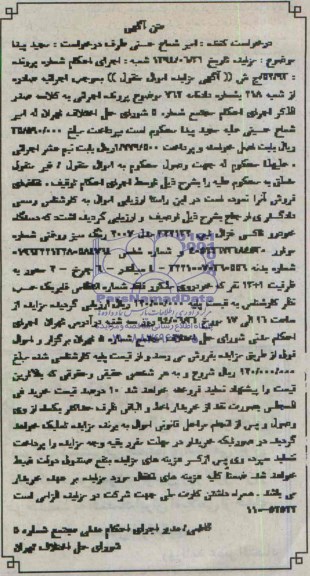 متن آگهی
درخواست کننده : امیر شماع حسنی طرف درخواست : مجید پیدا
موضوع : مزایده تاریخ ۱۳۹۶/۰۶/۲۱ شعبه : اجرای احکام شماره پرونده
ج ش (( آگهی مزایده اموال منقول )) بموجب اجرائیه صادره
از شعبه ۲۱۸ بشماره دادنامه ۷۶۲ موضوع پرونده اجرائی به کلاسه صدر
الذکر اجرای احکام مجتمع شماره ۵ شورای حل اختلاف تهران له امیر
شماع حسنی علیه مجید پیدا محکوم است بپرداخت مبلغ
ریال بابت اصل خواسته و پرداخت ریال بابت نیم عشر اجرائی
علیهذا محکوم له جهت وصول محکوم به اموال منقول / غیر منقول
متعلق به محکوم علیه را بشرح ذیل توسط اجرای احکام توقیف . تقاضای
فروش آنرا نموده است در این راستا ارزیابی اموال به کارشناس رسمی
دادگستری ارجاع بشرح ذیل توصیف و ارزیابی گردیده است: که دستگاه
مدل ۲۰۰۷ رنگ سبز روغنی شماره
موتور و شماره شاسی
شماره بدنه
ظرفیت نفر که خودروی مذکور فاقد شماره انتظامی فابریک حسب
نظر کارشناس به قیمت پایه ریال ارزیابی گردیده مزایده از
ساعت ۱۶ الی ۱۷ مورخ در آدرس تهران اجرای
احکام مدنی شورای حل اختلاف مجتمع شماره ۵ تهران برگزار و اموال
فوق از طریق مزایده بفروش می رسد و از قیمت پایه کارشناسی شده مبلغ
۱۲۰/۰۰۰/۰۰۰ ریال شروع و به هر شخص حقیقی و حقوقی که بالاترین
قیمت را پیشنهاد نماید فروخته خواهد شد . ۱۰ درصد قیمت خرید فی
المجلس بصورت نقد از خریدار اخذ و الباقی ظرف حداکثر یکماه از وی
وصول و پس از انجام مراحل قانونی اموال به برنده مزایده تملیک خواهد
گردید در صورتیکه خریدار در مهلت مقرر بقیه وجه مزایده را پرداخت
ننماید سپرده وی پس از کسر هزینه های مزایده بنفع صندوق دولت ضبط
خواهد شد. ضمنا کلیه هزینه های انتقال مورد مزایده بر عهده خریدار
می باشد . همراه داشتن کارت ملی جهت شرکت در مزایده الزامی است
۱۱۰-۵۲۵۲۲
کاظمی/ مدیر اجرای احکام مدنی مجتمع شماره ۵
شورای حل اختلاف تهران